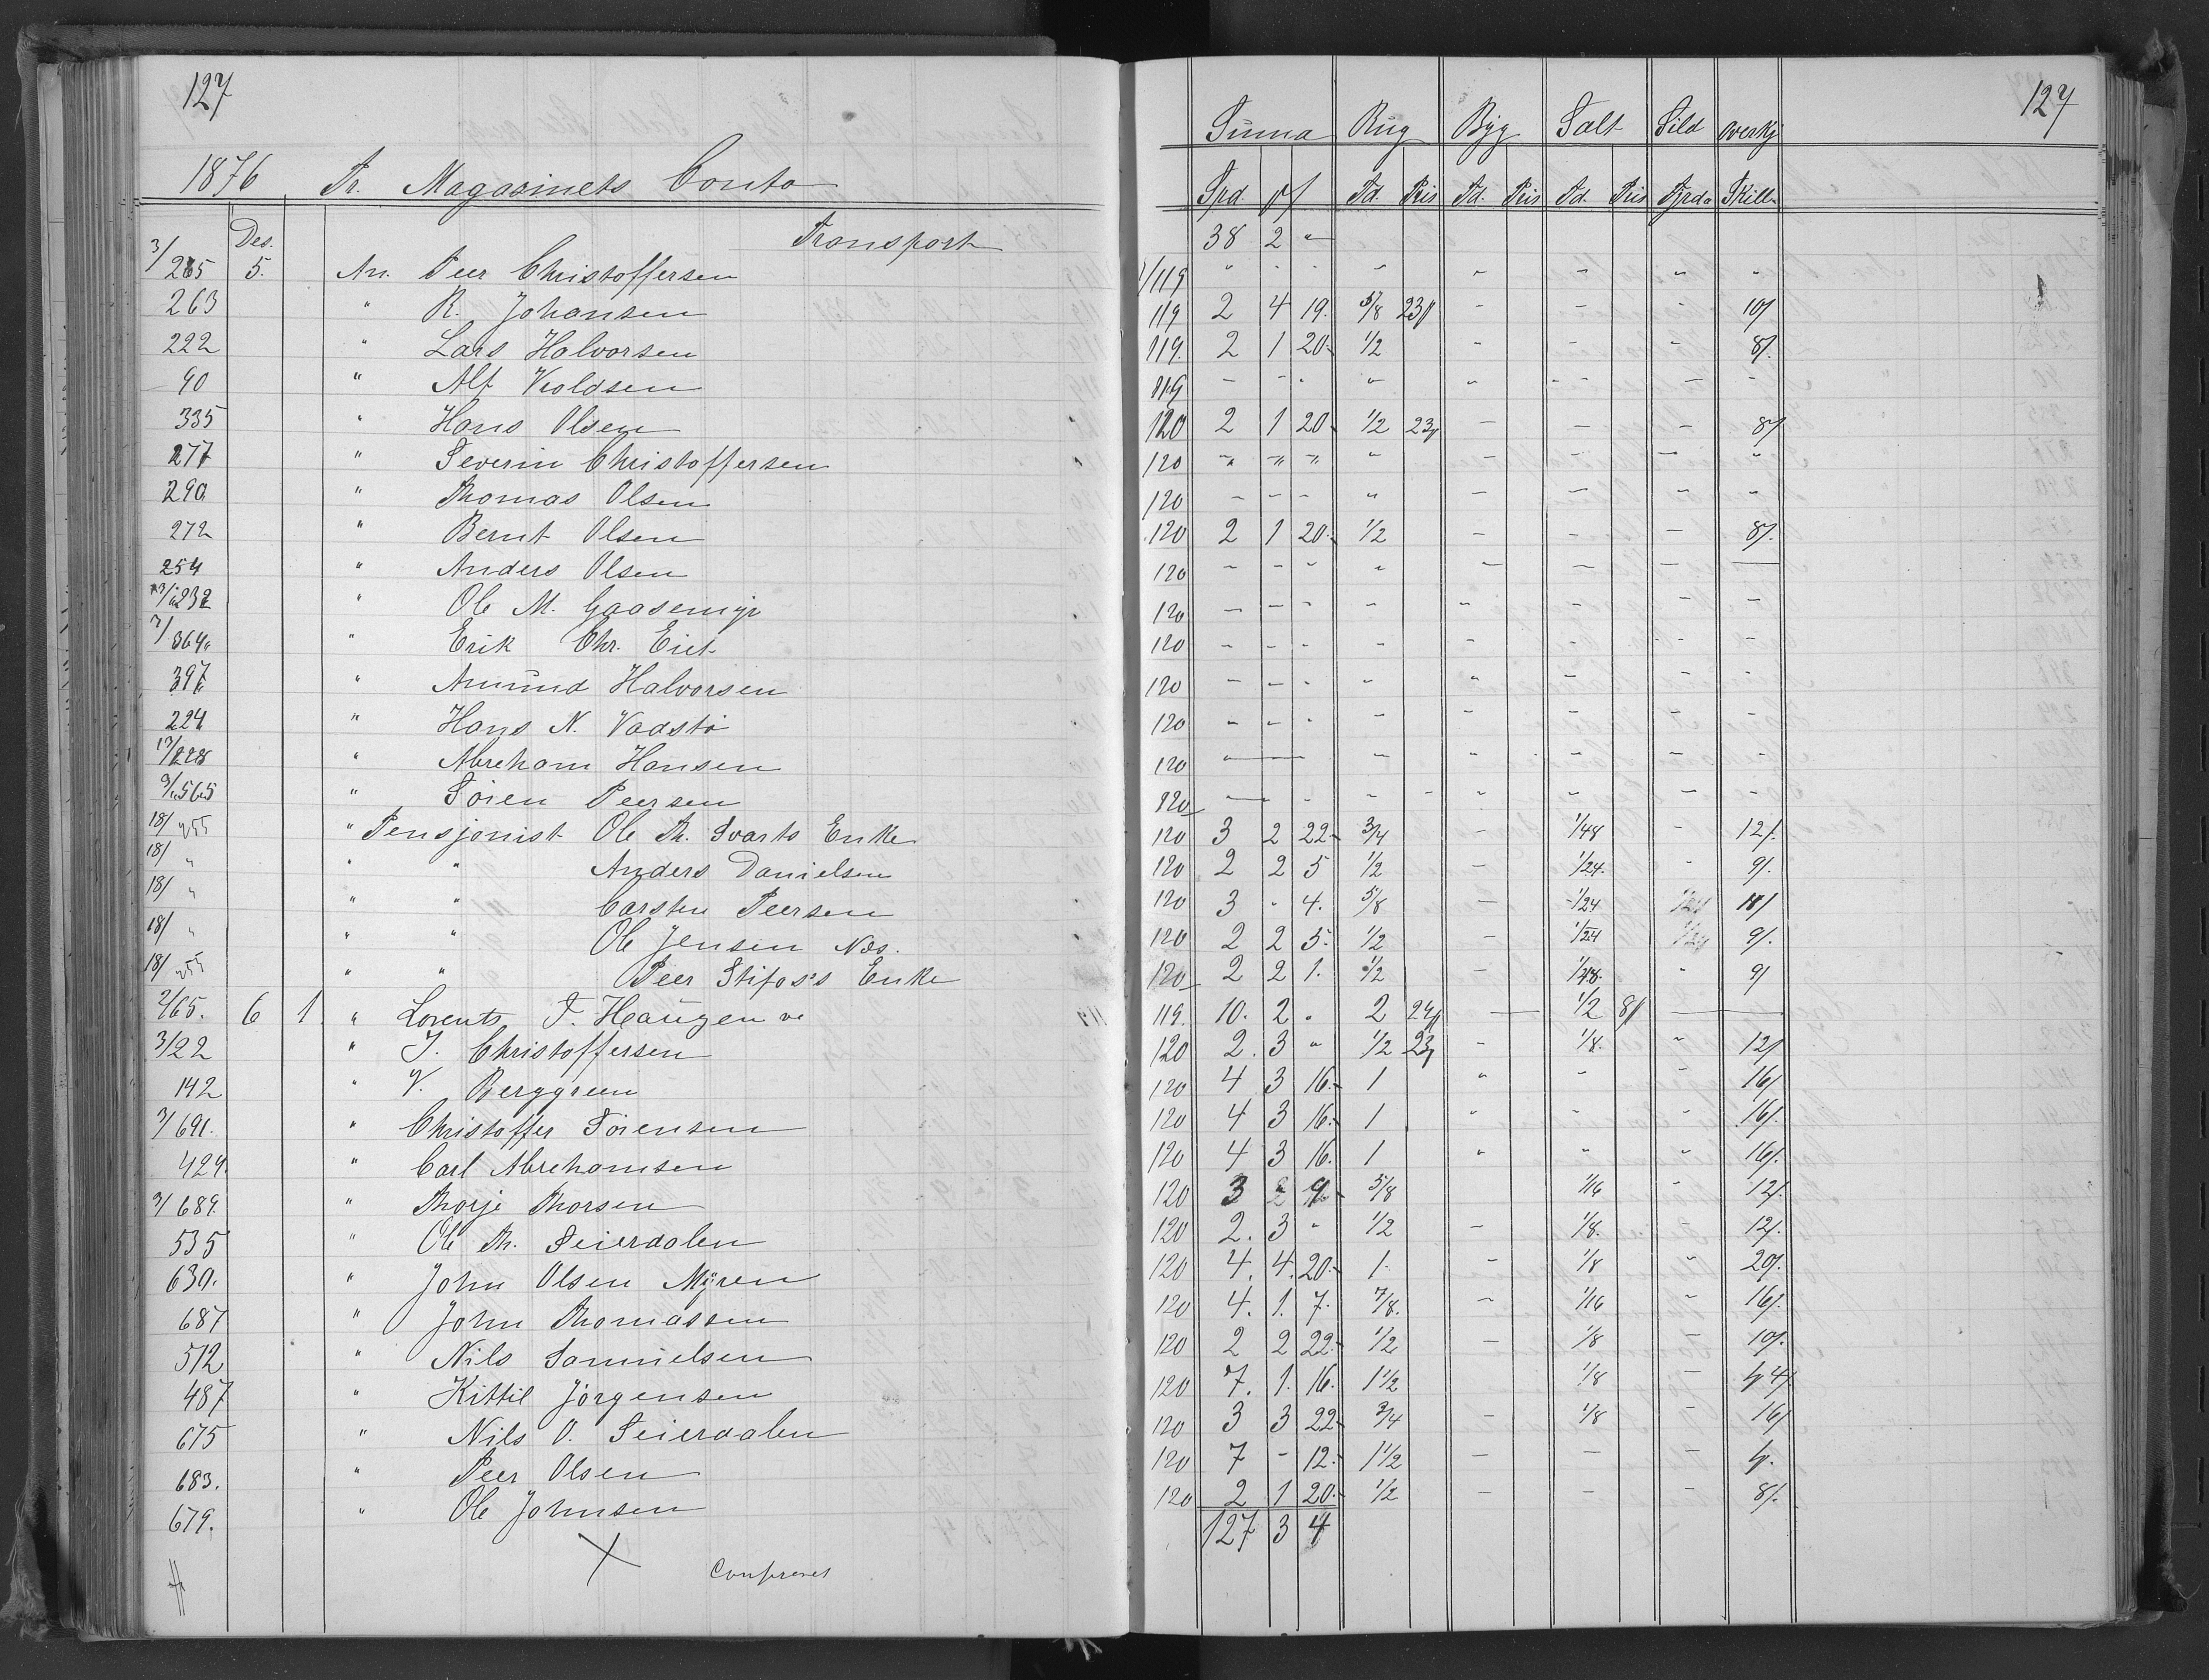 127
1876 Pr. Magasinets Conto
Des. Transport
3/265 5. An. Peer Christoffersen
263 " R. Johansen
222 " Lars Halvorsen
90 " Alf Kioldsen
335 " Hans Olsen
277 " Severin Christoffersen
290 " Thomas Olsen
272 " Bernt Olsen
254 " Anders Olsen
232 " Ole M. Gaasemyr
7/364 " Erik Chr. Eiet
397 " Amund Halvorsen
224 " Hans N. Vadstø
13/228 " Abreham Hansen
9/565 " Sören Peersen
18/255 " Pensjonist Ole Th. Svarts Enke
18/ " " " Anders Danielsen
18/ " " " Carsten Peersen
18/ " " " Ole Jensen Næs.
18/255 " " Peer Stifoss Enke
2/65. 6 1. " Lorents F. Haugen
3/22 " J. Christoffersen
142 " V. Berggreen
3/691. " Christoffer Sörensen
424. " Carl Abrehamsen
3/689. " Thorje Thorsen
535 " Ole Th. Seierdalen
630. " John Olsen Myren
687 " John Thomassen
512 " Nils Samuelsen
487 " Kittil Jörgensen
675 " Nils O. Seierdalen
683. " Peer Olsen
679. " Ole Johnsen
Confereret
127
Summa Rug Byg Salt Sild Overskj
Spd. Td. Pris Td. Pris Td. Pris Fjrd. Skill.
38 2 "
119 " - - " - - " "
119 2 4 19. 5/8 23 - - - 10/
119. 2 1 20. 1/2 - - - 8/.
119 - - - " " - - -
120 2 1 20. 1/2 23 - - - 8/
120 " " " " - - - "
120 - - - " - - " "
120 2 1 20. 1/2 - - - 8/.
120 - - - " - - - -
120 - - - - - - - -
120 - - - - - - - -
120 - - - - " - - -
120 - - - - - - - -
120 - - - - - - -
120 - - - - - - - -
120 3 2 22. 3/4 - 1/48 - 12/.
120 2 2 5 1/2 - 1/24. - 9/.
120 3 - 4. 5/8 - 1/24 1/24 11/
120 2 2 5. 1/2 - 1/24 1/24 9/.
120 2 2 1. 1/2 - 1/48. " 9/
119. 10. 2 " 2 24 - 1/2 8 -
120 2. 3 " 1/2 23 - 1/8. " 12/
120 4 3 16. 1 " - - 16/
120 4 3 16. 1 " - " 16/.
120 4 3 16. 1 " " " 16/.
120 3 " 9. 5/8 1/16 - 12/.
120 2. 3 - 1/2 - 1/8. - 12/.
120 4. 4. 20. 1. - 1/8 " 20/.
120 4. 1. 7. 7/8. - 1/16 - 16/.
120 2 2 22. 1/2 - 1/8 - 10/.
120 7. 1. 16. 1 1/2 1/8 -
120 3 3 22. 3/4 - 1/8 - 16/
120 7 - 12. 1 1/2 - - -
120 2 1 20. 1/2 - - - 8/.
127 3 4